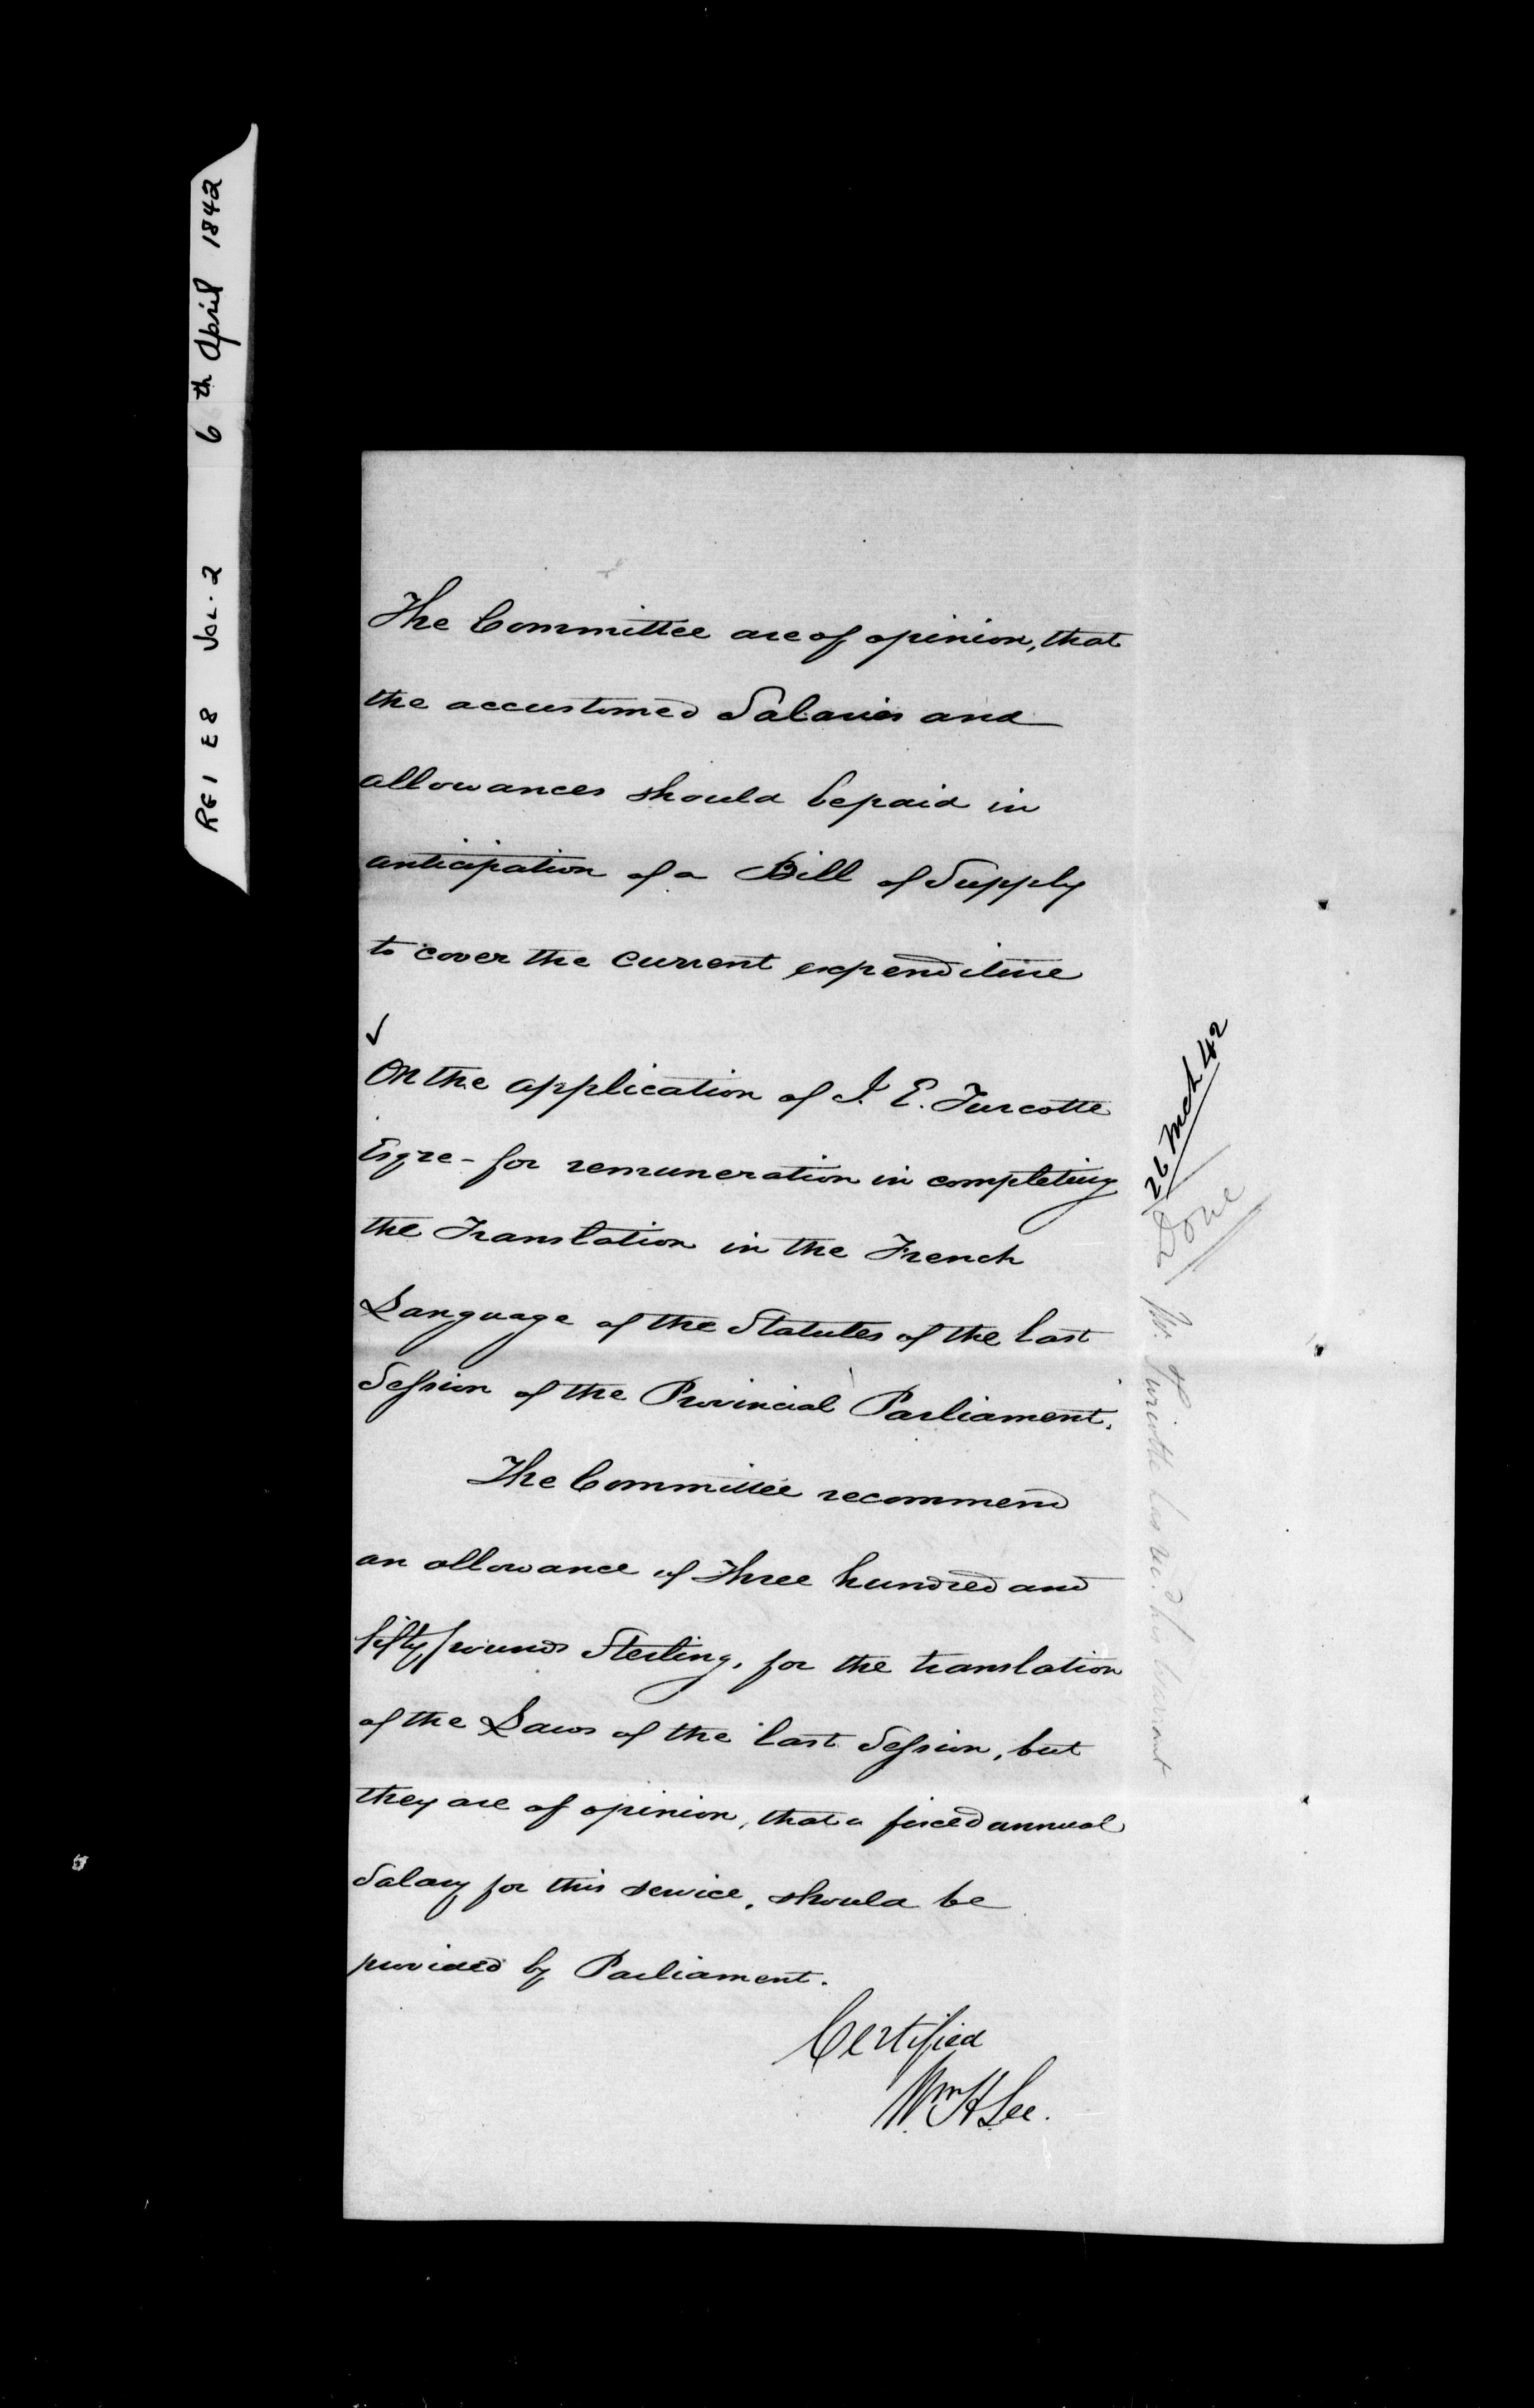 RG1 E8 VOL. 2 6th April 1842
The Committee are of opinion, that
the accustomed Salaries and
allowances should be paid in
anticipation of a Bill of Supply
to cover the current expenditure
✓
On the application of J. E. Turcotte
Esqre - for remuneration in completing
the Translation in the French
Language of the Statutes of the last
Session of the Provincial Parliament.
The Committee recommend
an allowance of Three hundred and
fifty pounds Sterling, for the translation
of the Laws of the last Session, but
they are of opinion, that a fixed annual
Salary for this service, should be
provided by Parliament.
Certified
Wm H Lee.
26 Mch 42
Done
Mr. Turcotte has recd. his warrant